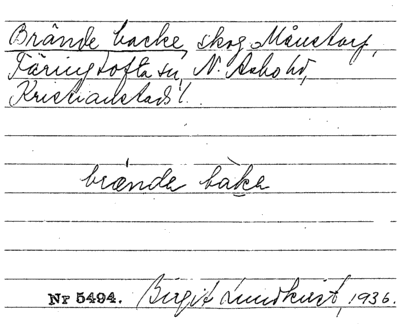 Brände backe, skog Månstorp,
Färingtofta sn, N. Åsbo hd,
Kristianstads l.
brände bàka
Nr 5494. Birgit Lundkvist, 1936.